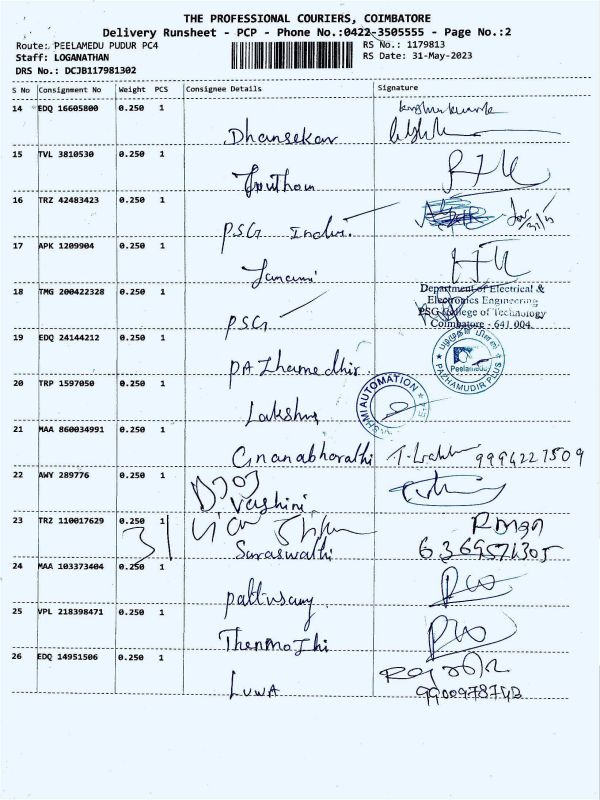 THE PROFESSIONAL COURIERS, COIMBATORE
Delivery Runsheet - PCP - Phone No.:0422-3505555 - Page No.:2
Route: PEELAMEDU PUDUR PC4
RS No.: 1179813
Staff: LOGANATHAN
RS Date: 31-May-2023
DRS No.: DCJB117981302
S No Consignment No Weight PCS Consignee Details Signature
14 EDQ 16605800 0.250 1
Dhansekar
15 TVL 3810530 0.250 1
16 TRZ 42483423 0.250 1
PSG
17 APK 1209904 0.250 1
18 TMG 200422328 0.250 1
PSG
Department of Electrical &
Electronics Engineering
PSG College of Technology
Coimbatore - 641 004.
19 EDQ 24144212 0.250 1
பழமுதிர் பிளஸ்
Peelamedu
PAZHAMUDIR PLUS
20 TRP 1597050 0.250 1
AUTOMATION
21 MAA 860034991 0.250 1
Gnanabharathi 9994227509
22 AWY 289776 0.250 1
Varshini
23 TRZ 110017629 0.250 1
Saraswathi
24 MAA 103373404 0.250 1
pattusamy
25 VPL 218398471 0.250 1
Thenmozhi
26 EDQ 14951506 0.250 1
LUWA 9900978742